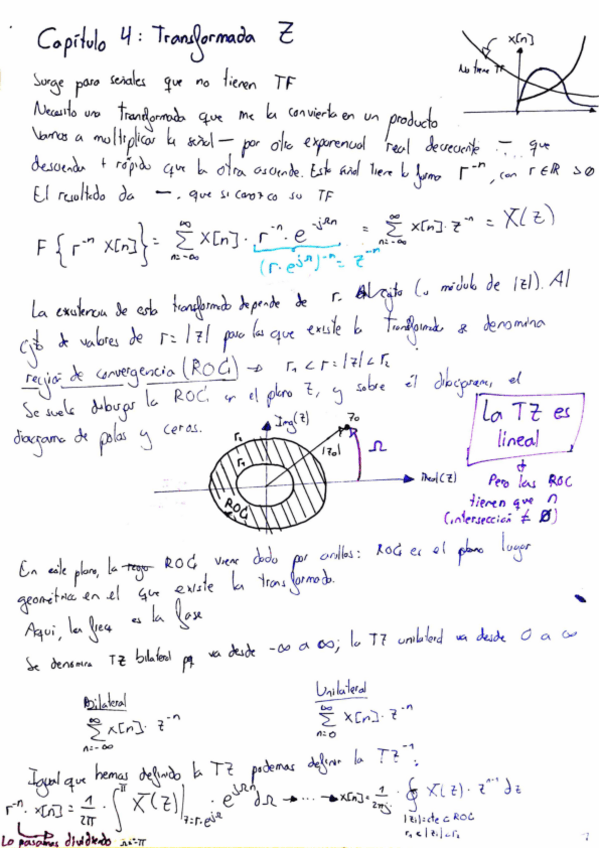 Capítulo 4: Transformada Z
x[n]
No tiene TF
Surge para señales que no tienen TF
Necesito una transformada que me la convierta en un producto
Vamos a multiplicar la señal — por otra exponencial real decreciente -- que
descienda + rápido que la otra asciende. Esta señal tiene la forma r⁻ⁿ, con r ∈ ℝ > 0
El resultado da —, que si conozco su TF
F { r⁻ⁿ x[n] } = ∑_{n=-∞}^{∞} x[n] · r⁻ⁿ · e^{-jΩn} = ∑_{n=-∞}^{∞} x[n] · z⁻ⁿ = X(z)
(r·e^{jΩ})⁻ⁿ = z⁻ⁿ
La existencia de esta transformada depende de r. (o módulo de |z|). Al
cjto de valores de r = |z| para los que existe la transformada se denomina
región de convergencia (ROC) → r₁ < r = |z| < r₂
Se suele dibujar la ROC en el plano Z, y sobre él diagrama, el
diagrama de polos y ceros.
Img(z)
z₀
r₂
r₁
|z₀|
Ω
ROC
Real(z)
La TZ es
lineal
↓
Pero las ROC
tienen que ∩
(intersección ≠ ∅)
En este plano, la ROC viene dado por anillos: ROC es el plano lugar
geométrico en el que existe la transformada.
Aquí, la frec es la fase
Se denomina TZ bilateral pq va desde -∞ a ∞; la TZ unilateral va desde 0 a ∞
Bilateral
∑_{n=-∞}^{∞} x[n] · z⁻ⁿ
Unilateral
∑_{n=0}^{∞} x[n] · z⁻ⁿ
Igual que hemos definido la TZ podemos definir la TZ⁻¹:
r⁻ⁿ · x[n] = 1/2π · ∫_{-π}^{π} X(z)|_{z=r·e^{jΩ}} · e^{jΩn} dΩ → ... → x[n] = 1/2πj · ∮ X(z) · z^{n-1} dz
|z| = cte ⊂ ROC
r₁ < |z| < r₂
Lo pasamos dividiendo